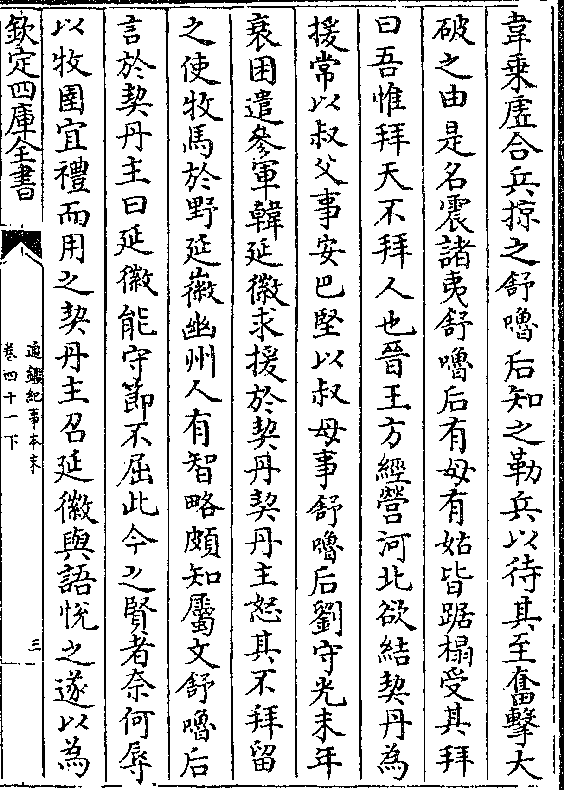 韋乘虛合兵掠之舒嚕后知之勒兵以待其至奮擊大
破之由是名震諸夷舒嚕后有母有姑皆踞榻受其拜
曰吾惟拜天不拜人也晉王方經營河北欲結契丹為
援常以叔父事安巴堅以叔母事舒嚕后劉守光末年
衰困遣參軍韓延徽求援於契丹契丹主怒其不拜留
之使牧馬於野延徽幽州人有智略頗知屬文舒嚕后
言於契丹主曰延徽能守節不屈此今之賢者奈何辱
以牧圉宜禮而用之契丹主召延徽與語悅之遂以為
欽定四庫全書
通鑑紀事本末
卷四十一下
三